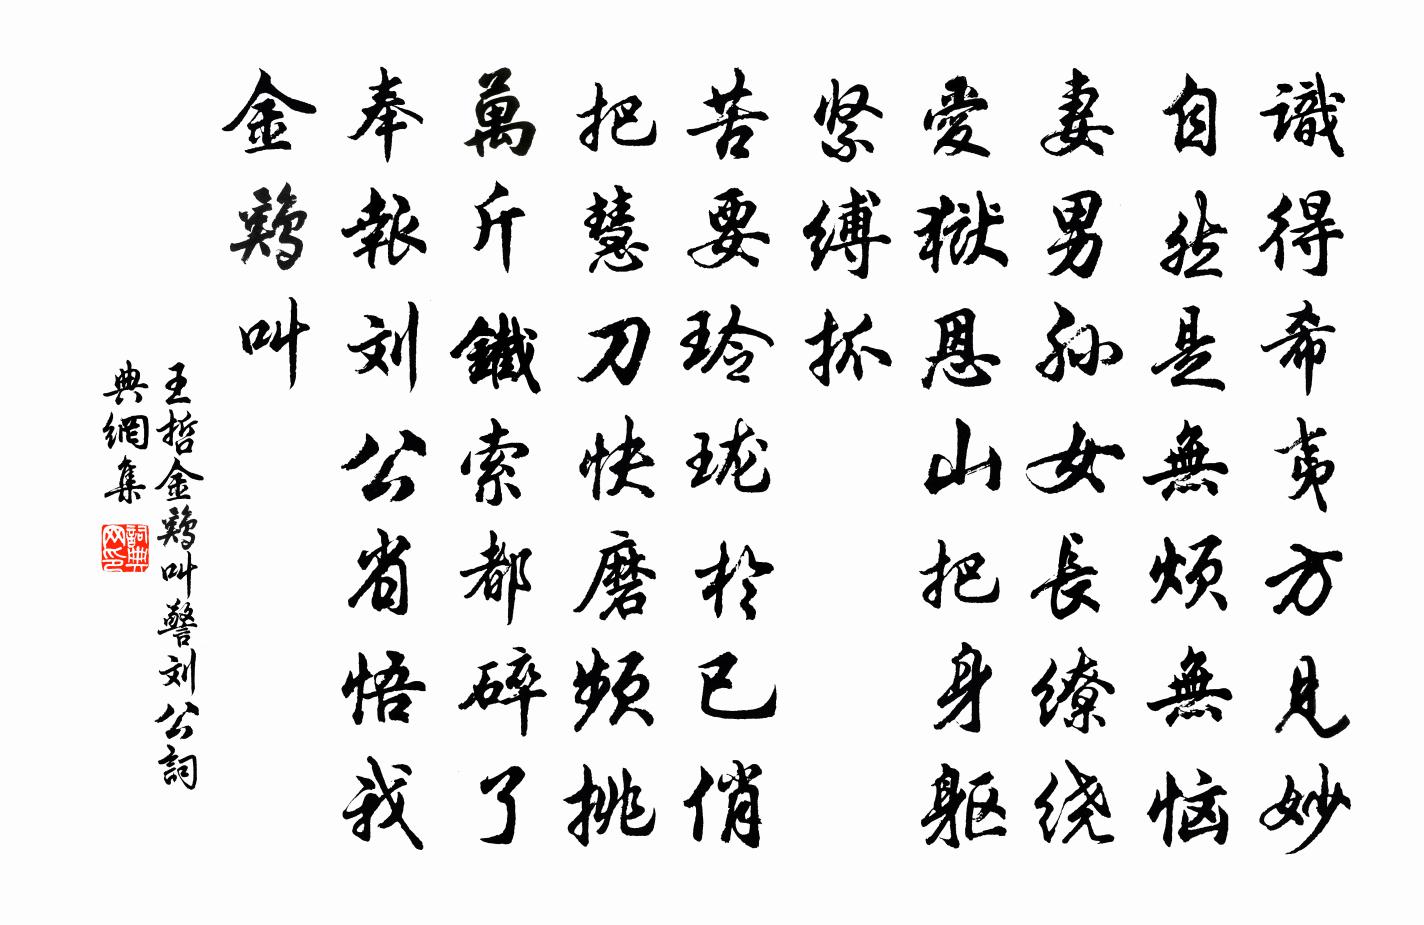 識得希夷方見妙
自然是無煩無恼
妻男孫女長繚绕
愛獄恩山把身躯
紧縛抓
苦要玲珑於已俏
把慧刀快磨頻挑
萬斤鐵索都碎了
奉報刘公省悟我
金鶏叫
王哲金鶏叫警刘公詞
典網集
詞典网印